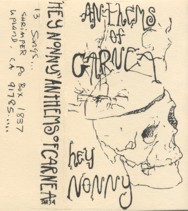 ANTHEMS
OF
GARNEA
hey
NONNY
HEY NONNY "ANTHEMS OF GARNEA"
13 songs...
Shrimper PO Box 1837
Upland, CA
91785.....